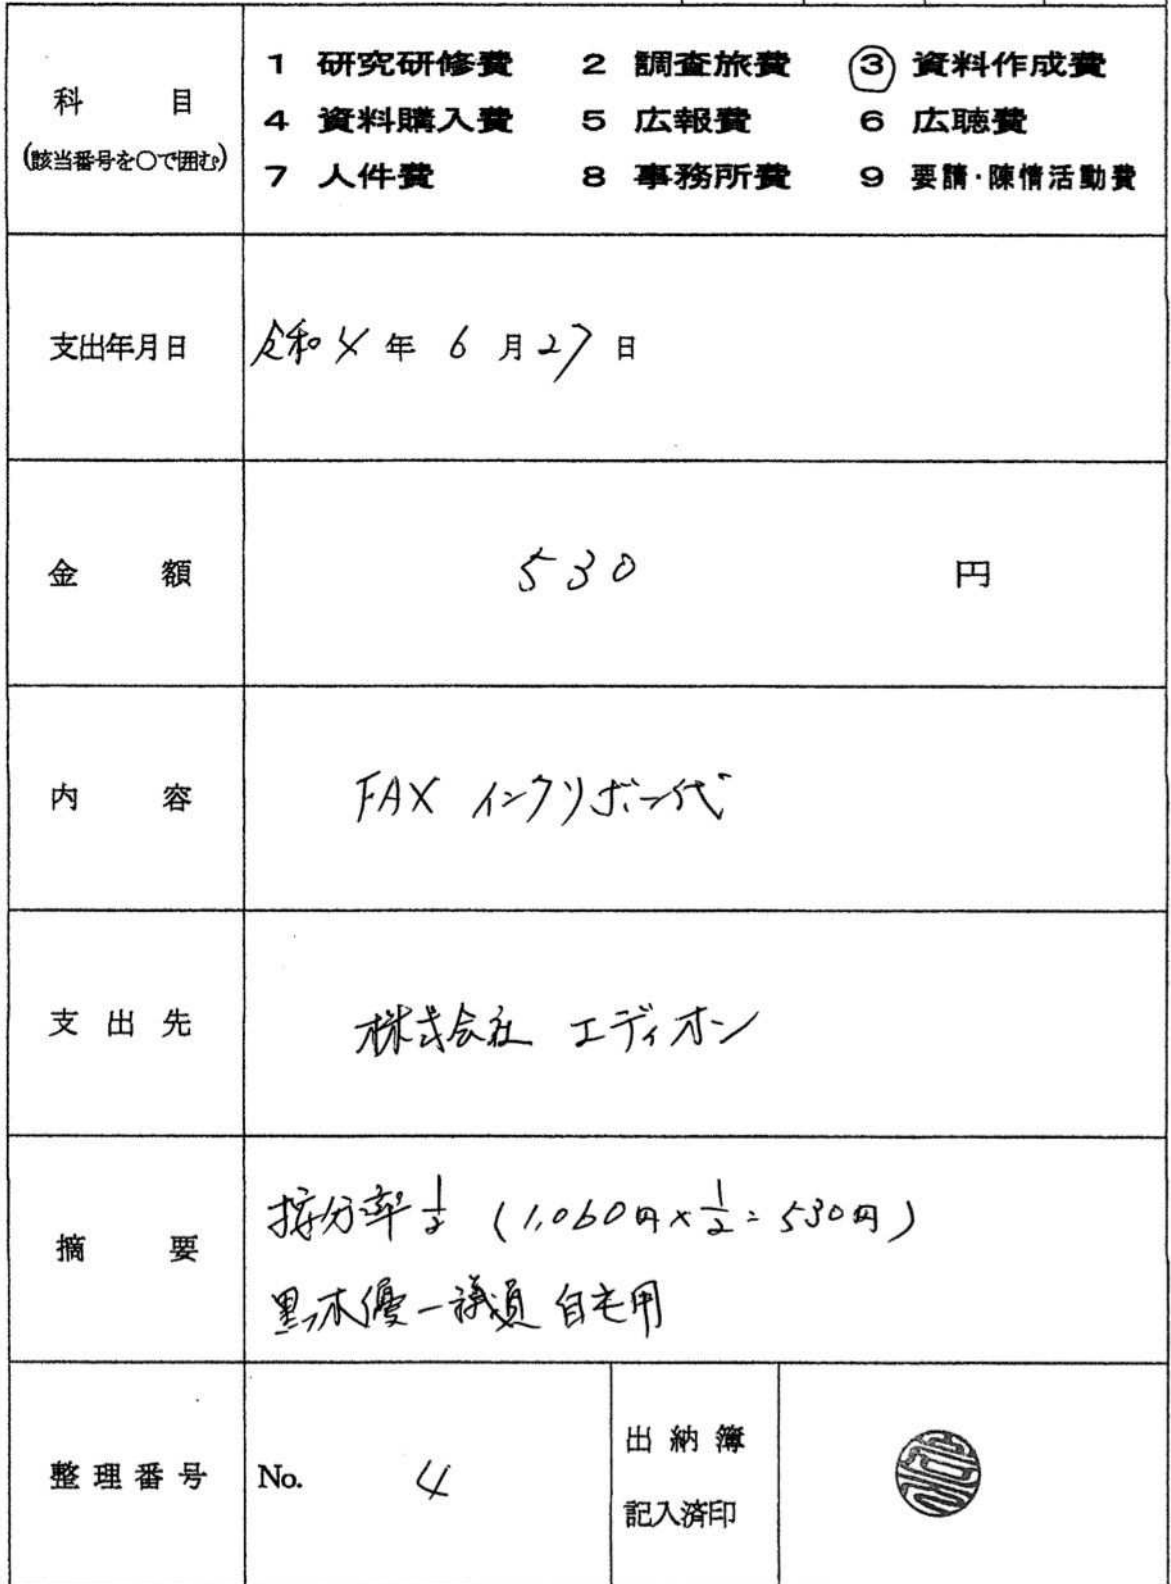 科 目
(該当番号を○で囲む)
1 研究研修費 2 調査旅費 ③ 資料作成費
4 資料購入費 5 広報費 6 広聴費
7 人件費 8 事務所費 9 要請・陳情活動費
支出年月日 令和4年 6月27日
金 額 530 円
内 容 FAX インクリボン代
支 出 先 株式会社 エディオン
摘 要
按分率1/2 (1,060円×1/2=530円)
黒木優一議員 自宅用
整理番号 No. 4
出納簿
記入済印